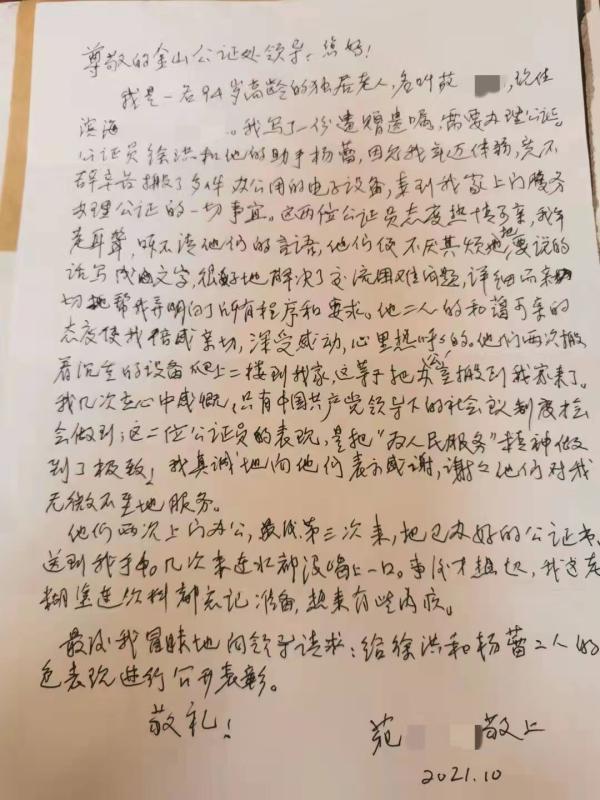 尊敬的金山公证处领导：您好！
我是一名94岁高龄的独居老人，名叫苑，现住
滨海。我写了一份遗赠遗嘱，需要办理公证。
公证员徐洪和他的助手杨蕾，因为我年迈体弱，竟不
辞辛苦搬了多件办公用的电子设备，来到我家上门服务
办理公证的一切事宜。这两位公证员态度热情可亲，我年
老耳聋，听不清他们的言语，他们便不厌其烦地把要说的
话写成文字，很好地解决了交流困难问题，详细而亲
切地帮我弄明白了所有程序和要求。他二人的和蔼可亲的
态度使我倍感亲切，深受感动，心里热呼呼的。他们两次搬
着沉重的设备爬上二楼到我家，这等于把办公室搬到我家来了。
我几次在心中感慨，只有中国共产党领导下的社会主义制度才
会做到；这二位公证员的表现，是把“为人民服务”精神做
到了极致！我真诚地向他们表示感谢，谢谢他们对我
无微不至地服务。
他们两次上门办公，最后第三次来，把已办好的公证书
送到我手中。几次来连水都没喝上一口。事后才想起，我老
糊涂连饮料都忘记准备，想来有些内疚。
最后我冒昧地向领导请求：给徐洪和杨蕾二人的
色表现进行公开表彰。
敬礼！
苑 敬上
2021.10